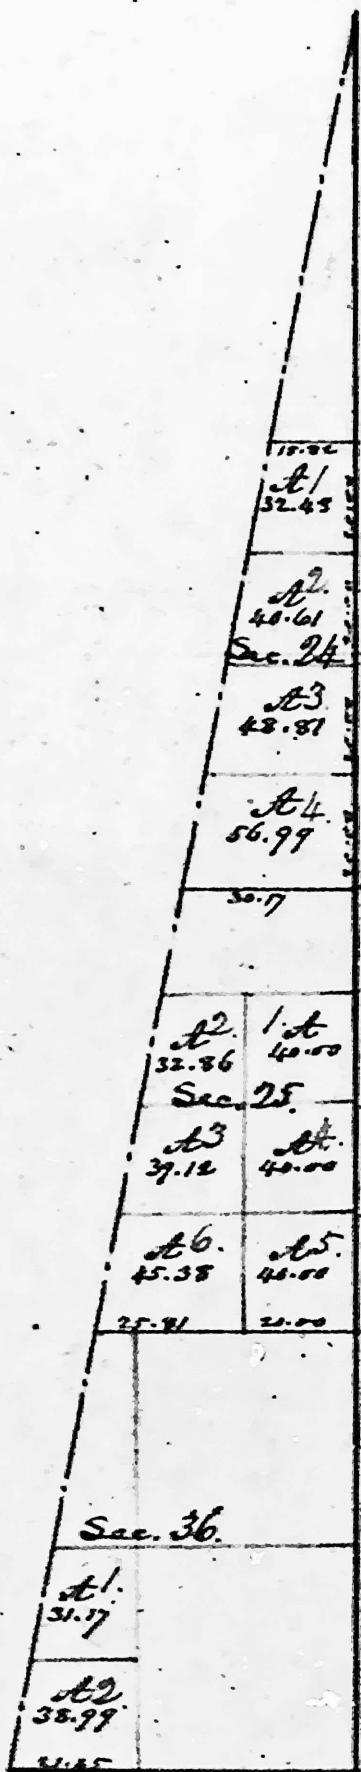 A1
32.45
A2.
40.61
Sec. 24
A3
48.81
A4.
56.99
30.17
A2.
32.86
1.A
40.00
Sec. 25.
A3
39.12
A4.
40.00
A6.
45.38
A5.
40.00
25.81
20.00
Sec. 36.
A1.
31.17
A2
38.99